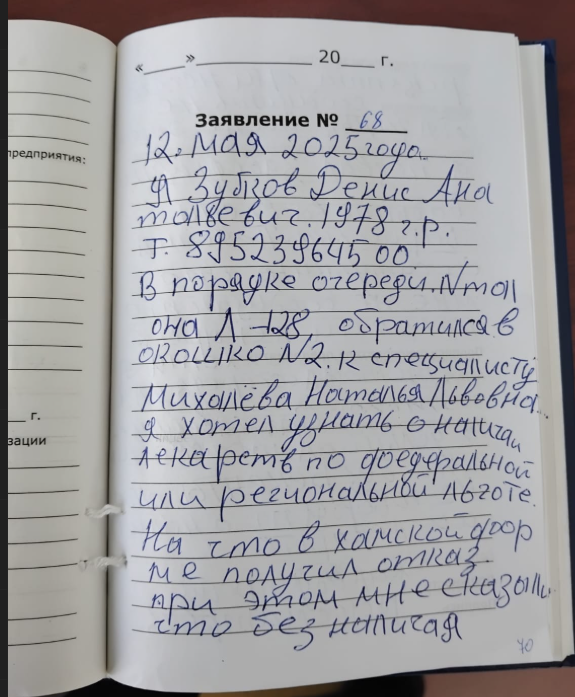 предприятия:
г.
зации
«____»____________ 20___ г.
Заявление № 68
12. мая 2025 года.
Я Зубков Денис Ана
толвевич. 1978 г.р.
Т. 89523964500
В порядке очереди. N тал
она Л-128, обратился в
окошко N2. к специалисту
Михалёва Наталья Львовна.
я хотел узнать о наличаи
лекарств по федеральной
или региональной льготе.
На что в хамской фор
ме получил отказ.
при этом мне сказали
что без наличая
70